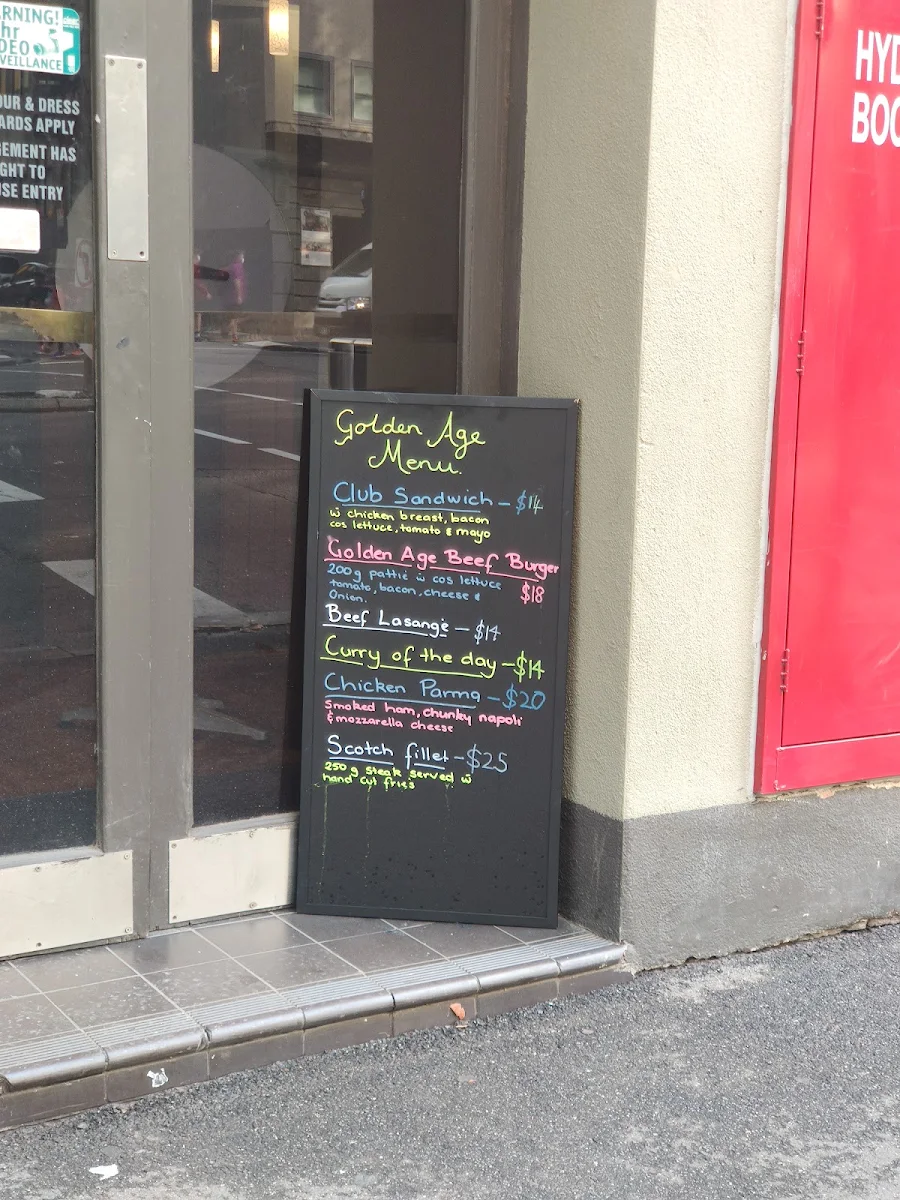 WARNING!
hr
VIDEO
SURVEILLANCE
OUR & DRESS
ARDS APPLY
GEMENT HAS
GHT TO
USE ENTRY
Golden Age
Menu.
Club Sandwich - $14
w̄ chicken breast, bacon
cos lettuce, tomato & mayo
Golden Age Beef Burger
200g pattie w̄ cos lettuce $18
tomato, bacon, cheese &
Onion.
Beef Lasange - $14
Curry of the day - $14
Chicken Parma - $20
Smoked ham, chunky napoli
& mozzarella cheese
Scotch fillet - $25
250g steak served w̄
hand cut fries
HYD
BOO